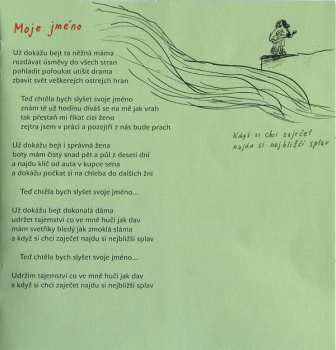 Moje jméno
Už dokážu bejt ta něžná máma
rozdávat úsměvy do všech stran
pohladit pofoukat utišit drama
zbavit svět veškerejch ostrejch hran
Teď chtěla bych slyšet svoje jméno
znám tě už hodinu díváš se na mě jak vrah
tak přestaň mi říkat cizí ženo
zejtra jsem v práci a pozejtří z nás bude prach
Už dokážu bejt i správná žena
boty mám čistý snad pět a půl z deseti dní
a najdu klíč od auta v kupce sena
a dokážu počkat si na chleba do dalších žní
Teď chtěla bych slyšet svoje jméno...
Už dokážu bejt dokonalá dáma
udržet tajemství co ve mně hučí jak dav
mám svetříky bledý jak zmoklá sláma
a když si chci zaječet najdu si nejbližší splav
Teď chtěla bych slyšet svoje jméno...
Udržím tajemství co ve mně hučí jak dav
a když si chci zaječet najdu si nejbližší splav
Když si chci zaječet
najdu si nejbližší splav